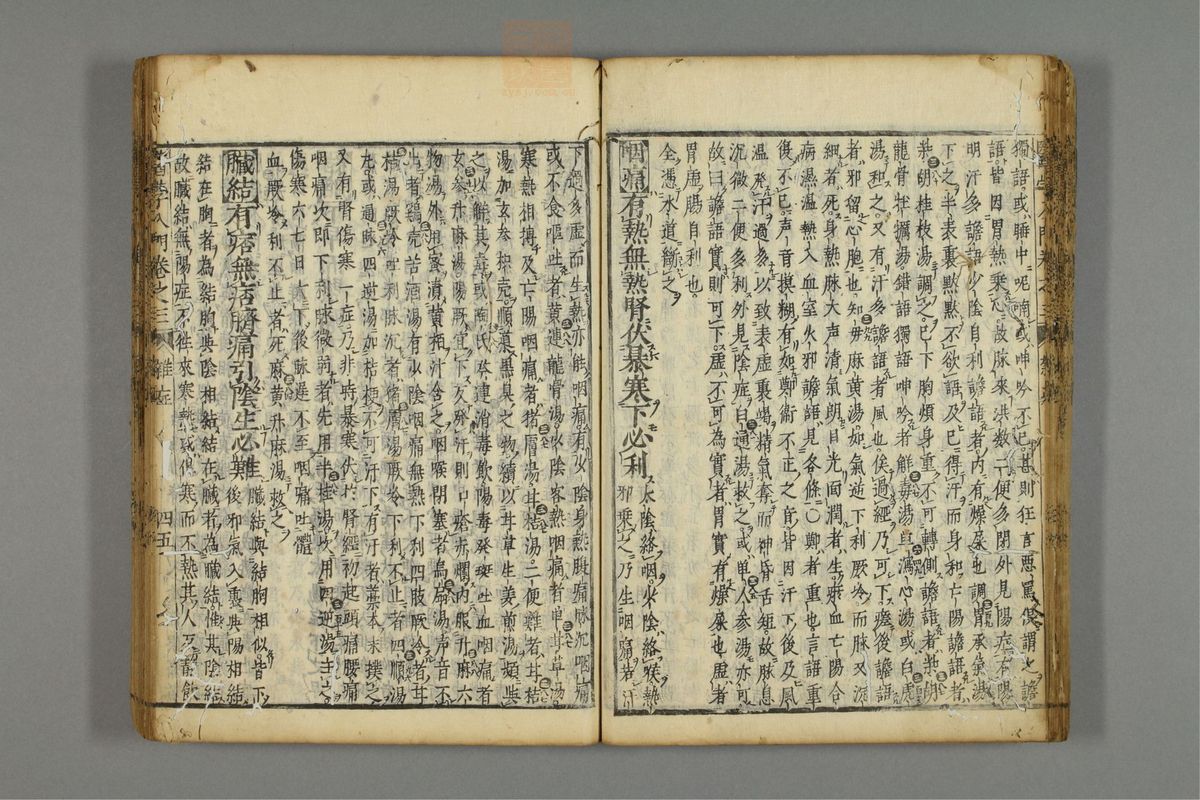 獨語或睡中呢喃或呻吟不已甚則狂言惡罵俱謂之譫
語皆因胃熱乘心故脉來洪数二便多閉外見陽症
明汗多譫語少陰自利譫語者内有燥屎也調胃承氣湯
下之半表裏默默不欲語及已得汗而身和亡陽譫語者
柴胡桂枝湯調之已下胸煩身重不可轉側譫語者柴胡
龍骨牡蠣湯錯語獨語呻吟者解毒湯瀉心湯或白虎
湯和之又有汗多譫語者風也俟過經乃可下瘥後譫語
者邪留心胞也知母麻黄湯如氣逆下利厥冷而脉又沉
細者死身熱脉大声清氣朗目光面潤者生厥血亡陽合
病濕温熱入血室火邪譫語見各條○鄭者重也言語重
復不已声音摸糊有如鄭衛不正之音皆因汗下後及風
温発汗過多以致表虚裏竭精氣奪而神昏舌短故脉息
沉微二便多利外見陰症白通湯救之或単人参湯亦可
故曰譫語實則可下虚不可為實者胃實有燥屎也虚者
胃虚腸自利也
全憑水道緻之
咽痛有熱無熱腎伏暴寒下必利
少陰絡咽少陰絡喉熱
邪乗之乃生咽痛若汗
下過多虚而生熱亦能咽痛有少陰身熱肢痛脉沉咽痛
或不食嘔吐者黄連龍骨湯少陰客熱咽痛者単甘草湯
寒熱相搏及亡陽咽痛者猪膚湯甘桔湯二便難者甘桔
湯加玄参枳壳順羲黒臭之物續以甘草生姜煎湯頻与
之以解其毒或陶氏苓連消毒飲陽毒発斑吐血咽痛者
玄参升麻湯陽厥宜下又発汗則口瘡赤爛内服升麻六
物湯外用蜜漬黄栢汁含之咽喉閉塞者烏扇湯声音不
出者鶏壳苦酒湯有少陰咽痛無熱下利四肢厥冷者甘
桔湯厥冷可利脉沉者猪膚湯厥冷下利不止者四順湯
丸或過脉四逆湯加桔梗不可汗下有汗者藁本末撲之
又有腎傷寒一症乃非時暴寒伏於腎經初起頭痛腰痛
咽痛次即下利脉微弱者先用半桂湯以用四逆湯主之
傷寒六七日大下後脉遲不至咽痛吐
血厥冷利不止者死麻黄升麻湯救之
臟結有痞無痞臍痛引陰生必難
臟結與結胸相似皆下
後邪氣入裏與陽相結
結在胸者為結胸與陰相結結在臟者為臟結惟其陰結
故臟結無陽症不徃來寒熱或但寒而不熱其人反静飲
卷之三
雜症
四五